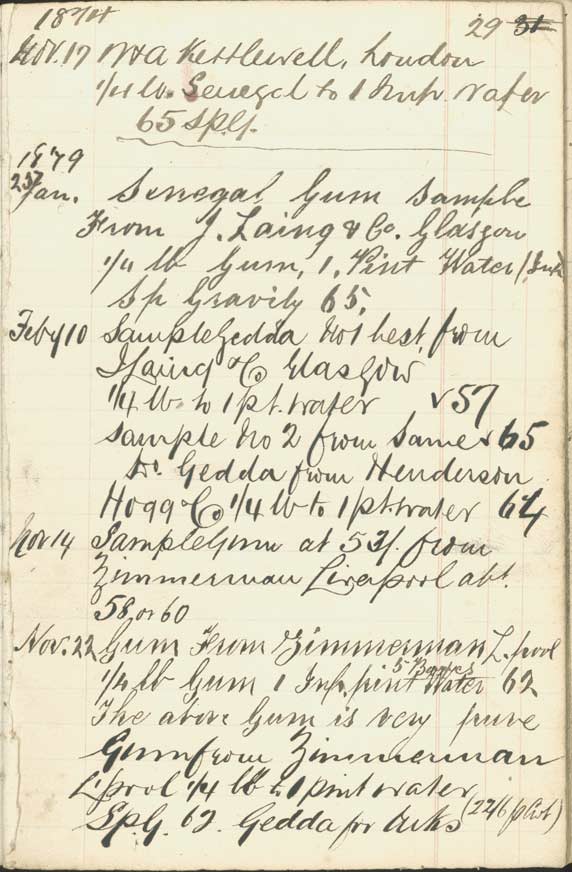 1878
29 31
Nov. 17 W & A Kettlewell, London
1/4 lb. Senegal to 1 Imp Water
65 SpG.
1879
Jan. Senegal Gum Sample
From J. Laing & Co. Glasgow
1/4 lb Gum, 1, Pint Water (Imp
Sp Gravity 65,
Feby 10 Sample Gedda No 1 best, from
J Laing & Co Glasgow
1/4 lb to 1 pt. water √57
Sample No 2 from Same √65
Do. Gedda from Henderson
Hogg & Co 1/4 lb to 1 pt water 64
Nov 14 Sample Gum at 53/. from
Zimmerman Liverpool abt.
58, or 60
Nov. 22 Gum From Zimmerman L.pool
1/4 lb Gum 1 Imp. pint Water 62
The above Gum is very pure
Gum from Zimmerman
L'pool 1/4 lb to 1 pint water
SpG. 62. Gedda for Inks